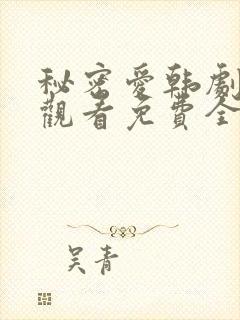 秘密愛韩劇
觀看免費全
吴青